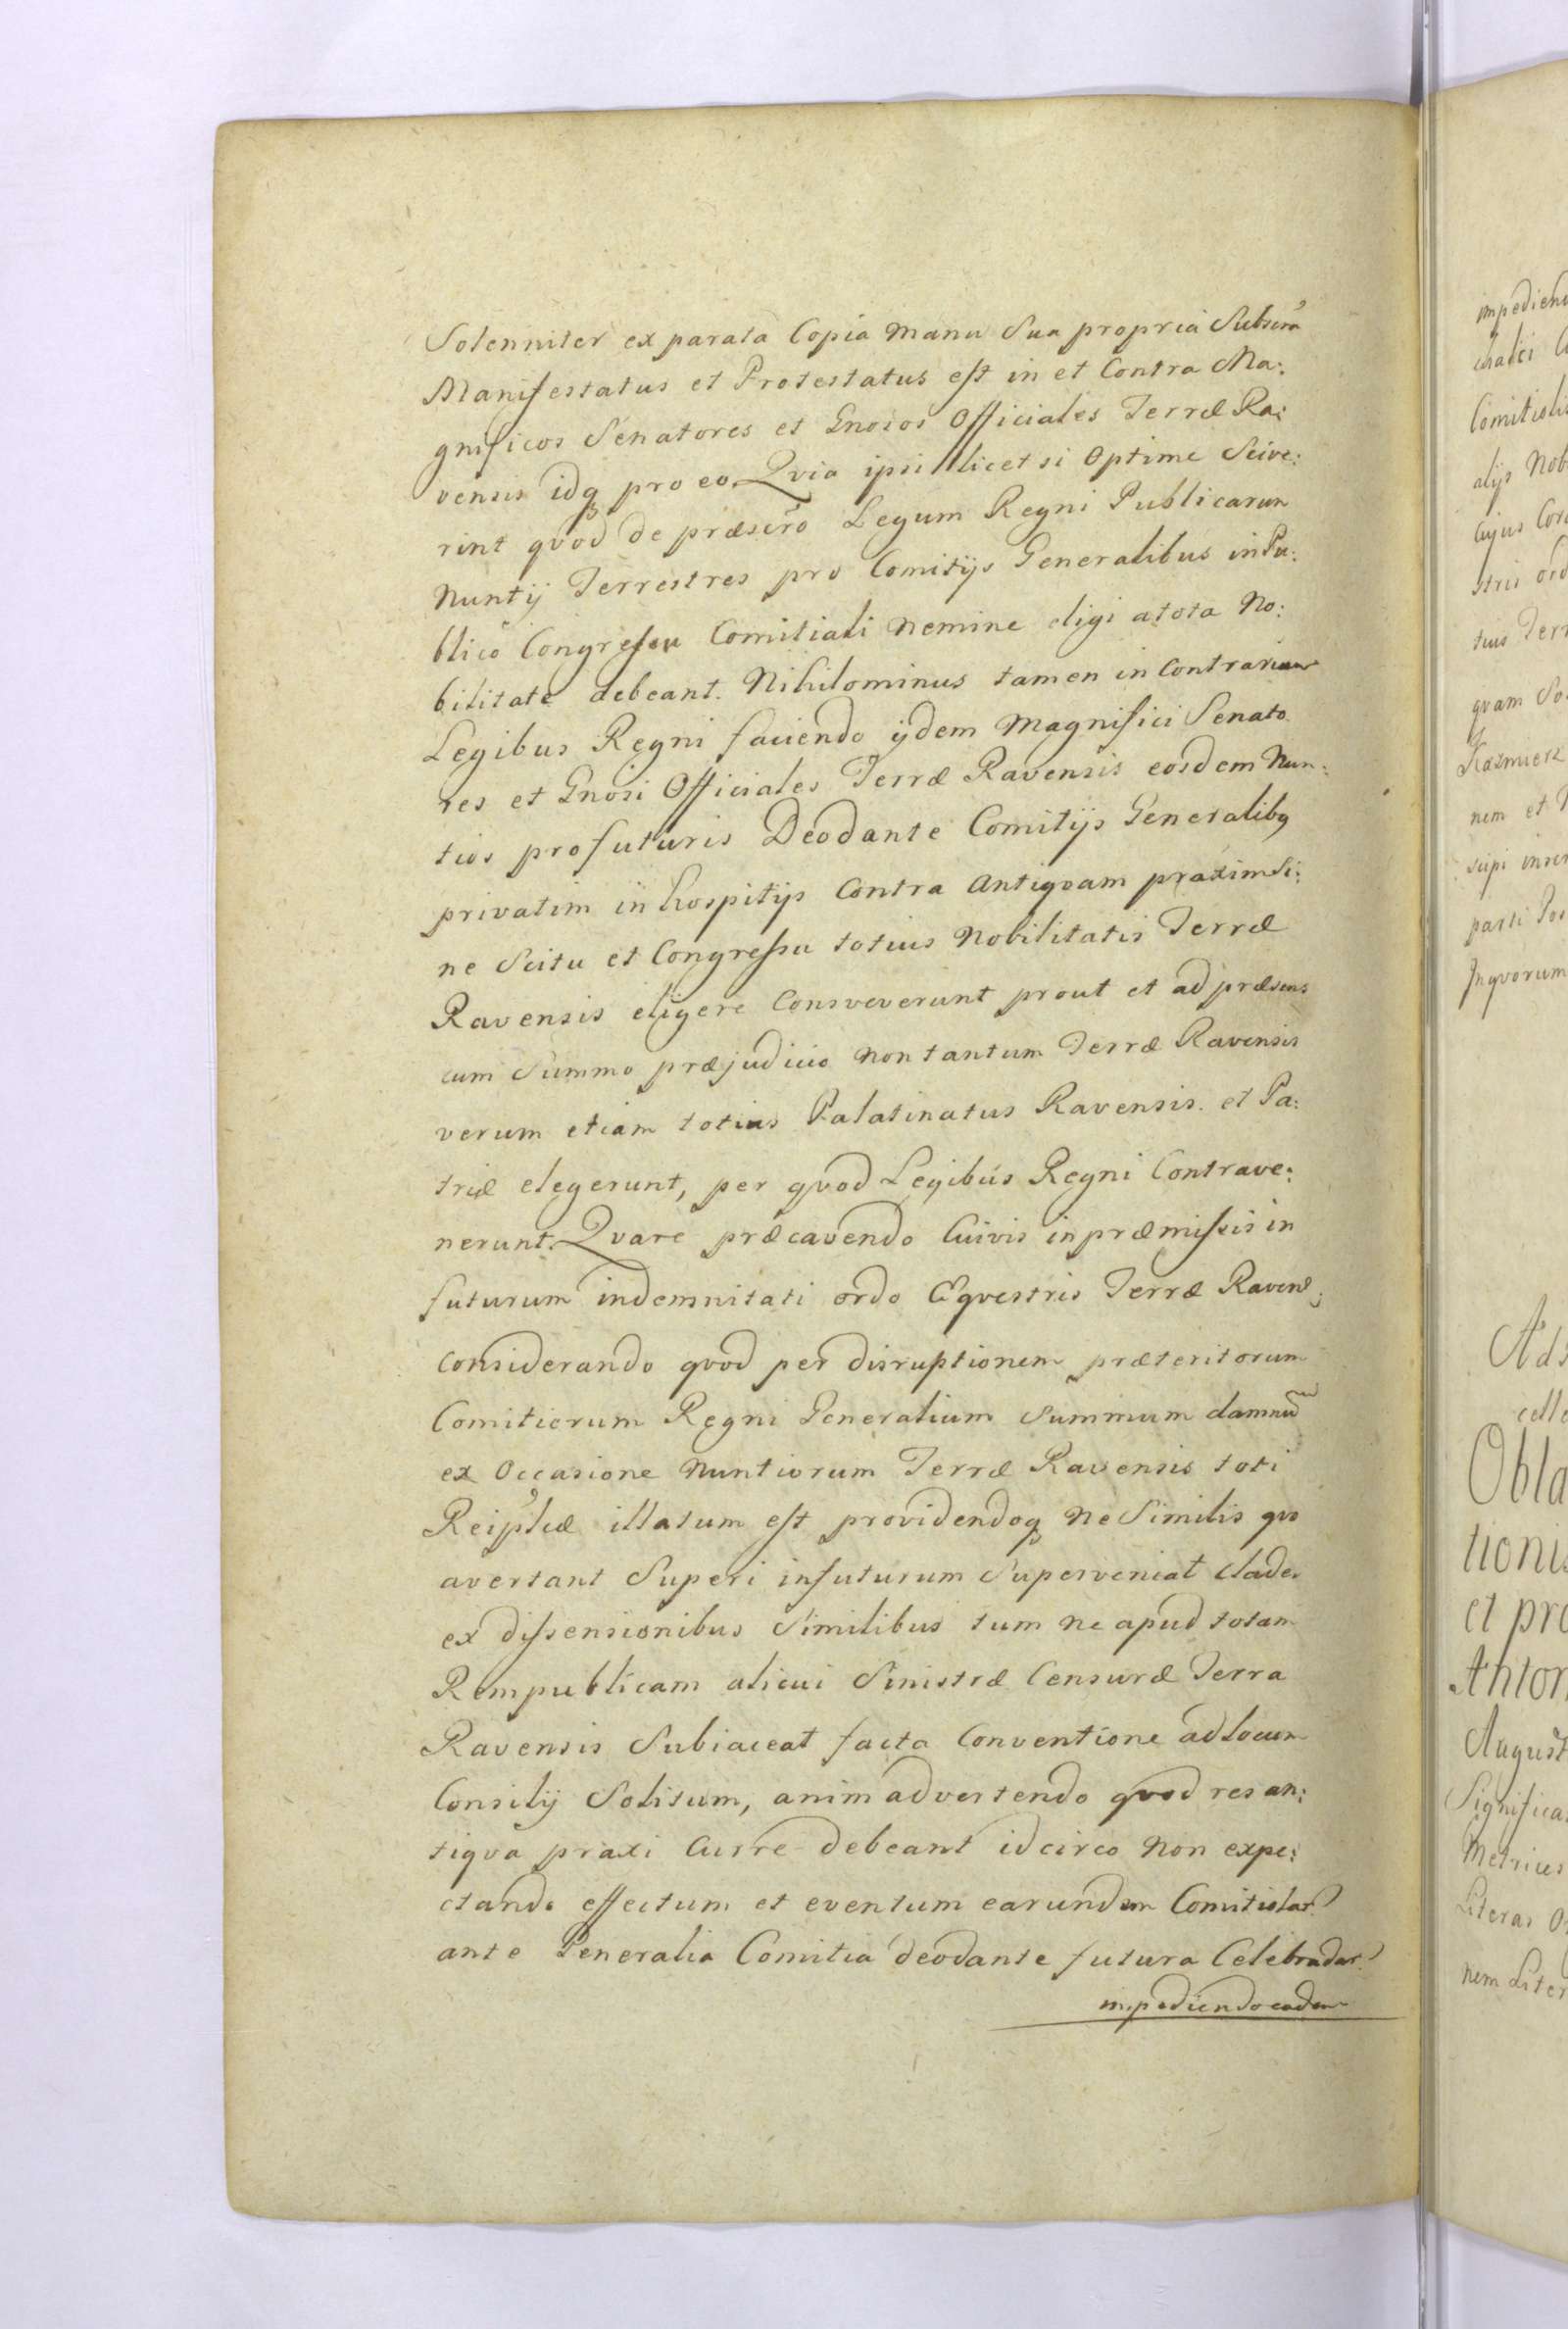 Solenniter ex parata Copia manu Sua propria Subscra
Manifestatus et Protestatus est in et Contra Ma:
gnificos Senatores et Gnosos Officiales Terræ Ra:
vensis idq pro eo. Qvia ipsi licet si Optime Scive:
rint qvod de præscro Legum Regni Publicarum
Nuntij Terrestres pro Comitijs Generalibus in Pu:
blico Congressu Comitiali nemine eligi a tota No:
bilitate debeant. Nihilominus tamen in Contrarium
Legibus Regni faciendo ijdem Magnifici Senato
res et Gnosi Officiales Terræ Ravensis eosdem Nun:
tios pro futuris Deodante Comitijs Generalibq
privatim in hospitijs Contra Antiqvam praxim Si:
ne Scitu et Congressu totius Nobilitatis Terræ
Ravensis eligere Consveverunt prout et ad præsens
cum Summo præjudicio non tantum Terræ Ravensis
verum etiam totius Palatinatus Ravensis. et Pa:
triæ elegerunt, per qvod Legibus Regni Contrave:
nerunt. Qvare præcavendo Cuivis in præmissis in
futurum indemnitati ordo Eqvestris Terræ Ravens;
considerando qvod per disruptionem præteritorum
Comitiorum Regni Generalium Summum damnu
ex Occasione Nuntiorum Terræ Ravensis toti
Reiplicæ illatum est providendoq ne Similis qvo
avertant Superi in futurum Superveniat clades
ex dissensionibus Similibus tum ne apud totam
Rempublicam alicui Sinistræ Censuræ Terra
Ravensis Subiaceat facta Conventione ad locum
Consilij Solitum, animadvertendo qvod res an:
tiqva praxi Curre debeant idcirco non expe:
ctando effectum et eventum earundem Comitiolar
ante Generalia Comitia deodante futura Celebradar
impediendo eadem
impediend
Comitiolis
alijs Nob
Cujus
stris ord
tius Terr
qvam
Kazmierz
nem et
scipi
parti Pos
Inqvorum
Obla
tionis
et pro
Anton
August
Significa
Metrices
Literas
nem Liter